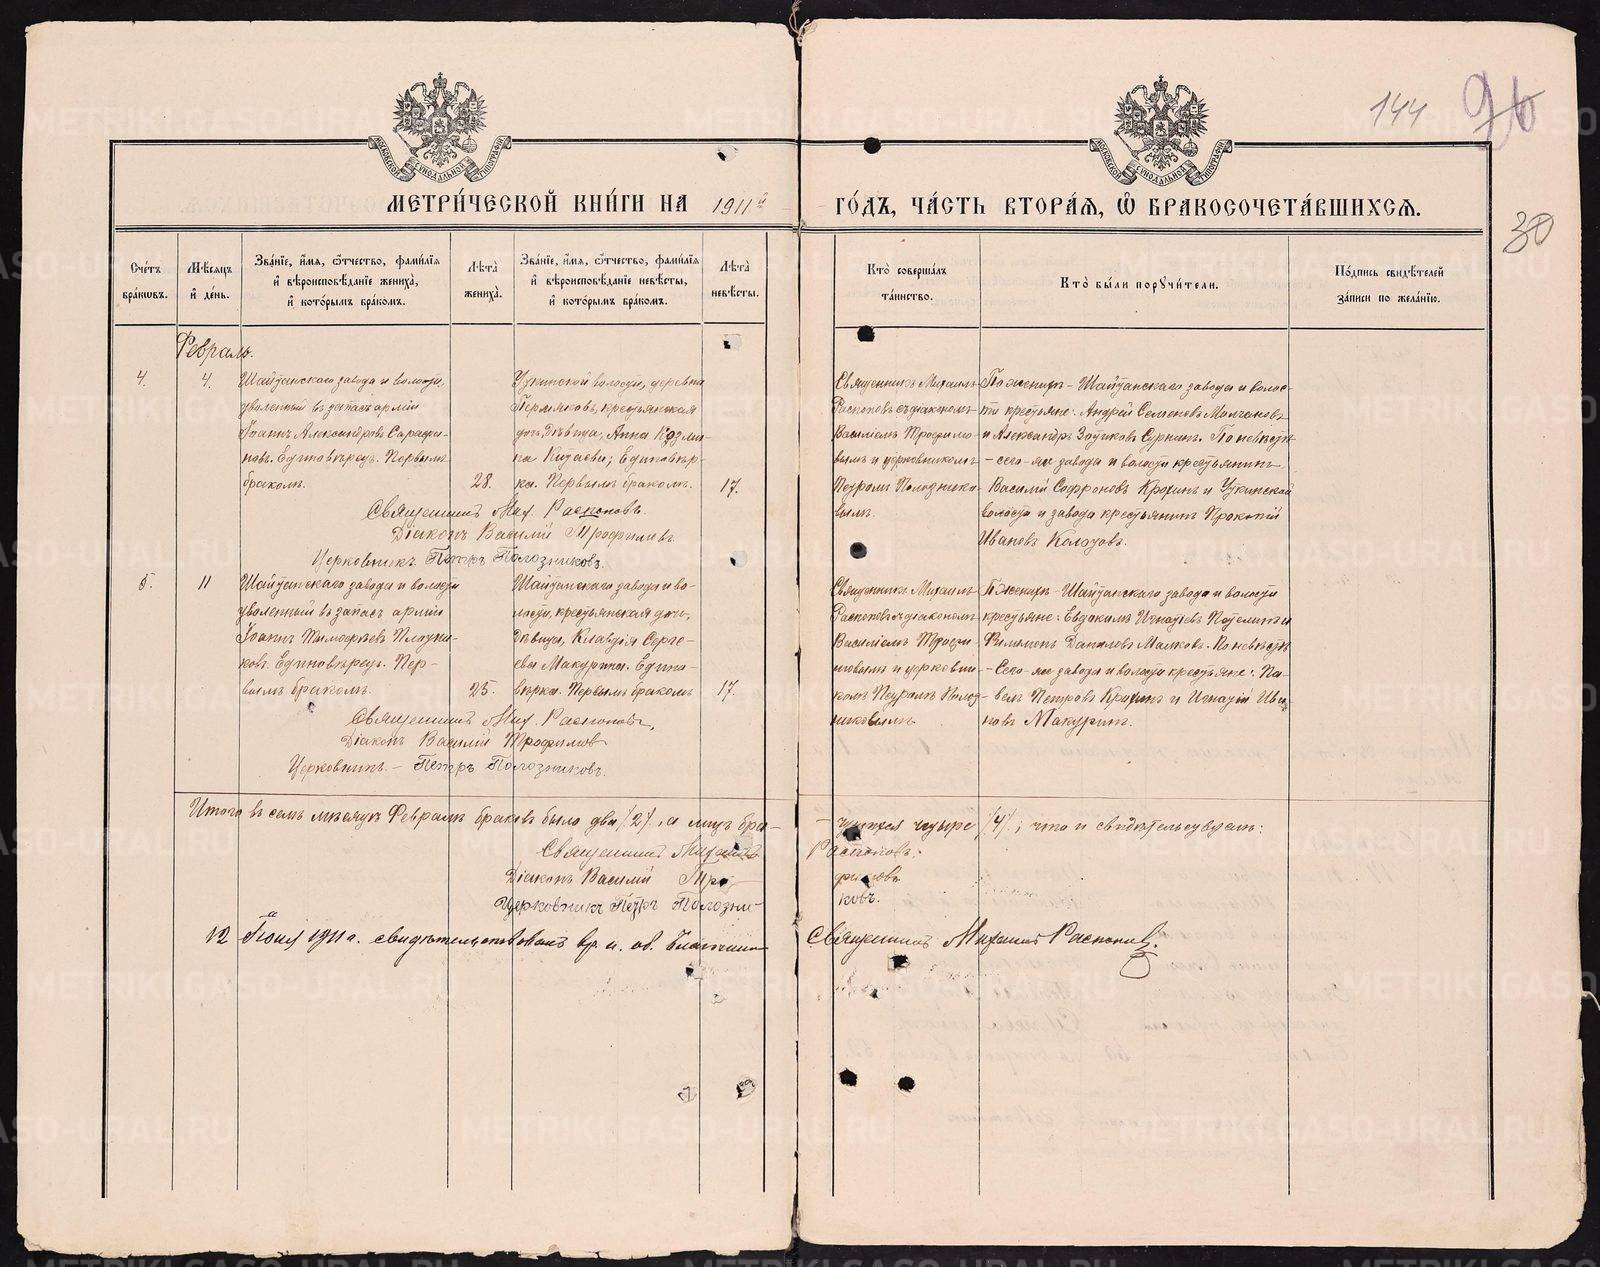 144 96
МОСКОВСКОЙ СѴНОДАЛЬНОЙ ТИПОГРАФІИ
МОСКОВСКОЙ СѴНОДАЛЬНОЙ ТИПОГРАФІИ
МЕТРИ́ЧЕСКОЙ КНИ́ГИ НА 1911й ГО́ДЪ, ЧА́СТЬ ВТОРА́Я, Ѽ БРАКОСОЧЕТА́ВШИХСЯ.
30
Сче́тъ
бра́ковъ.
Мѣсяцъ
и́ де́нь.
Зва́нїе, и́мя, ѻ́тчество, фами́лїя
и́ вѣроисповѣ́данїе жениха̀,
и́ кото́рымъ бра́комъ.
Лѣта̀
жениха̀.
Зва́нїе, и́мя, ѻ́тчество, фами́лїя
и́ вѣроисповѣ́данїе невѣ́сты,
и́ кото́рымъ бра́комъ.
Лѣта̀
невѣ́сты.
Кто̀ соверша́лъ
та́инство.
Кто̀ бы́ли порꙋчи́тели.
По́дпись свидѣ́телей
за́писи по жела́нїю.
Февраль.
4.
4.
Шайтанскаго завода и волости,
уволенный въ запасъ арміи
Іоаннъ Александровъ Сарафа-
новъ. Единовѣрецъ. Первымъ
бракомъ.
28.
волости, деревни
Пермяковъ, крестьянская
дочь, дѣвица, Анна Козми-
на Единовѣр-
ка. Первымъ бракомъ.
17.
Священникъ Михаилъ
Распоповъ съ діакономъ
Василіемъ Трофимо-
вымъ и церковникомъ
Петромъ Полознико-
вымъ.
По женихѣ - Шайтанскаго завода и волос-
ти крестьяне: Андрей Семеновъ Молчановъ
и Александръ По невѣстѣ
- сего-же завода и волости крестьянинъ
Василій Софроновъ и
волости и завода крестьянинъ Прокопій
Ивановъ
Священникъ Мих. Распоповъ.
Діаконъ Василій Трофимовъ
Церковникъ Петръ Полозниковъ.
5.
11
Шайтанскаго завода и волости
уволенный въ запасъ арміи
Іоаннъ Тимофеевъ Плотни-
ковъ. Единовѣрецъ. Пер-
вымъ бракомъ.
25.
Шайтанскаго завода и во-
лости, крестьянская дочь,
дѣвица, Клавдія Серге-
ева Макурина. Едино-
вѣрка. Первымъ бракомъ
17.
Священникъ Михаилъ
Распоповъ съ діакономъ
Василіемъ Трофи-
мовымъ и церковни-
комъ Петромъ Полоз-
никовымъ
По женихѣ - Шайтанскаго завода и волости
крестьяне: Евдокимъ Игнатіевъ и
Филимонъ Даниловъ Малковъ. По невѣстѣ
- Сего-же завода и волости крестьяне: Па-
велъ Петровъ и Игнатій Ива-
новъ Макуринъ.
Священникъ Мих. Распоповъ,
Діаконъ Василій Трофимовъ
Церковникъ - Петръ Полозниковъ.
Итого въ семъ мѣсяцѣ Февралѣ браковъ было два /2/, а лицъ бра- чущихся четыре /4/; что и свидѣтельствуемъ:
Священникъ Михаилъ Распоповъ.
Діаконъ Василій Тро- фимовъ
Церковникъ Петръ Полозни- ковъ.
12 Іюля 1911 г. свидѣтельствовалъ Священникъ Михаилъ Распоповъ.